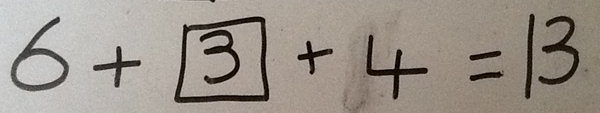 6 + 3 + 4 = 13